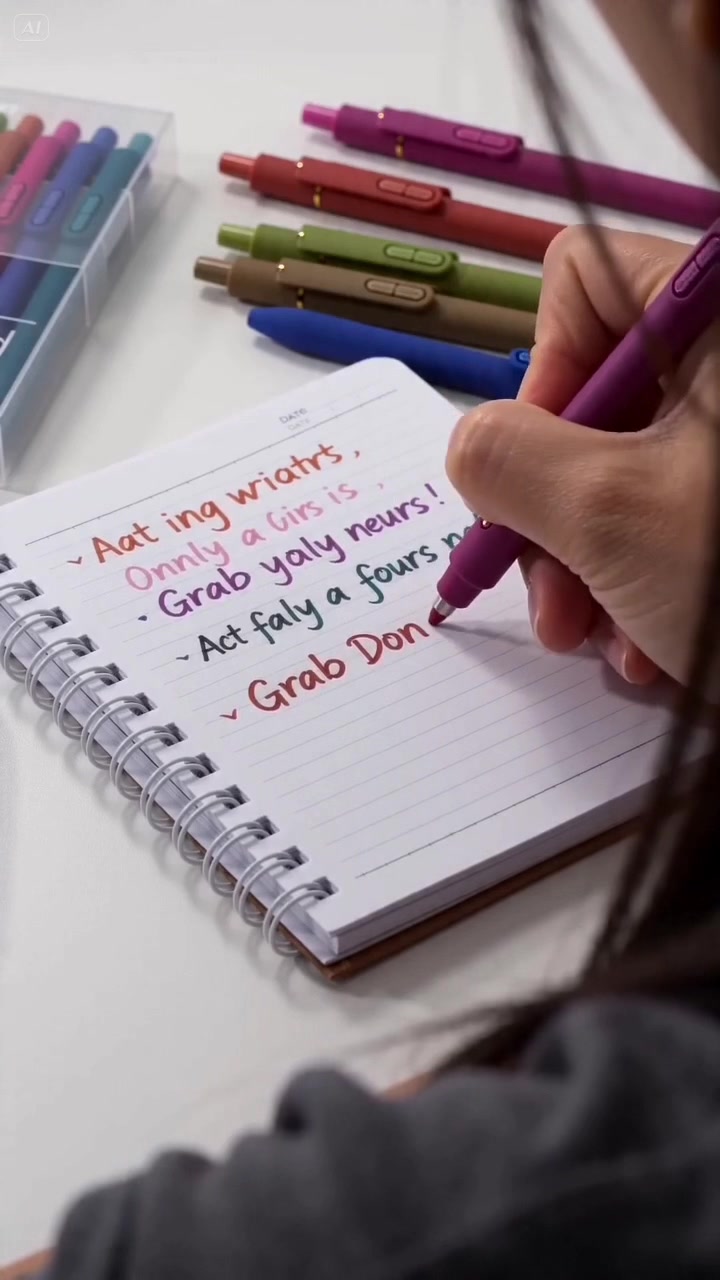 AI
DATE
DATE
Aat ing wiatrs,
Onnly a Girs is ,
Grab yaly neurs!
Act faly a fours
Grab Don